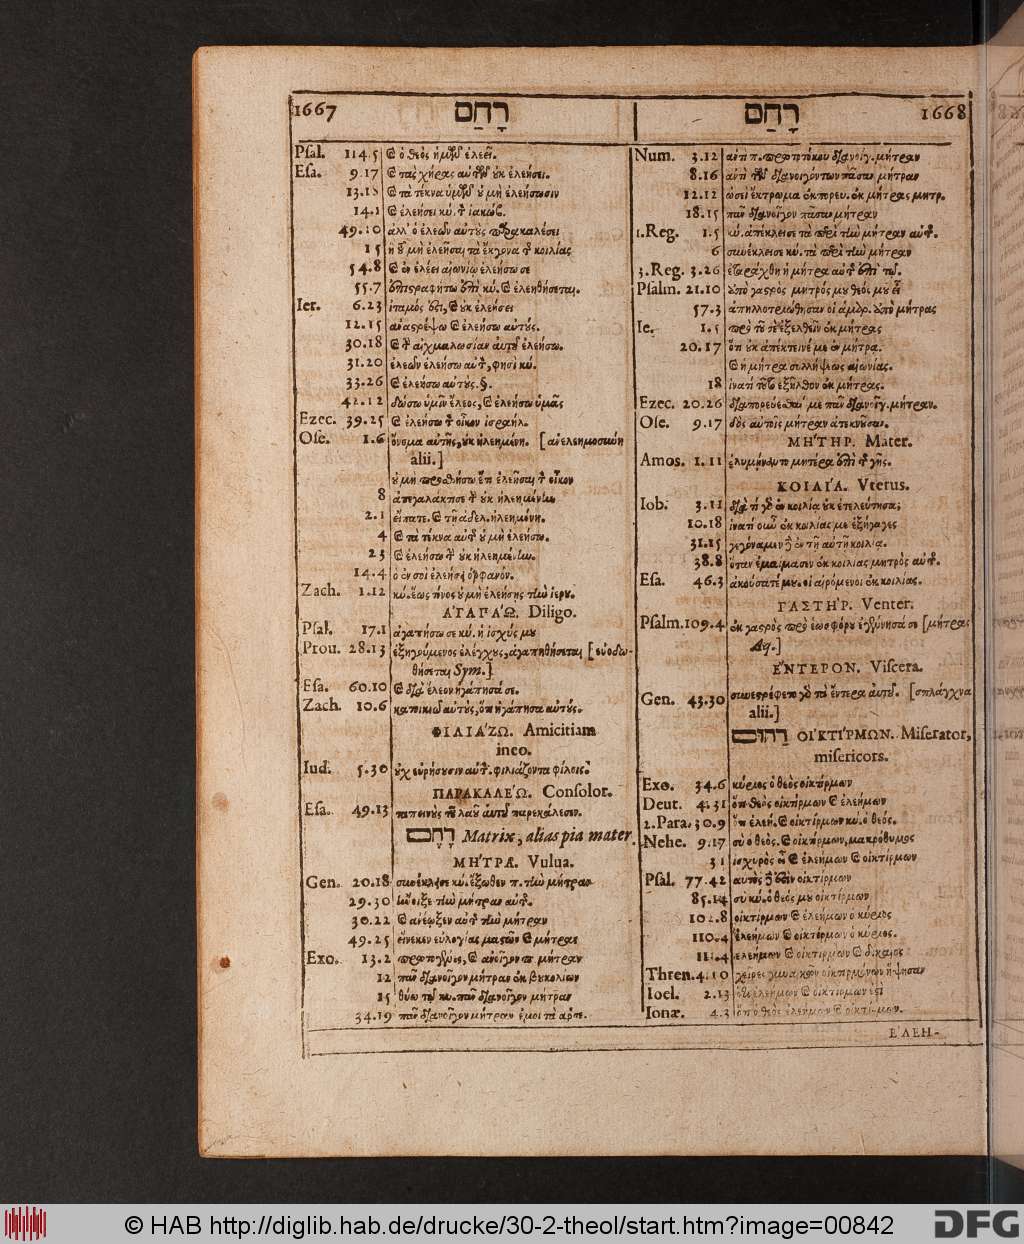 1667 רָחַם
Psal. 114.5 ϗ ὁ θεὸς ἡμῶν ἐλεεῖ.
Esa. 9.17 ϗ τὰς χήρας αὐτῶν οὐκ ἐλεήσει.
13.18 ϗ τὰ τέκνα ὑμῶν οὐ μὴ ἐλεήσωσιν
14.1 ϗ ἐλεήσει κύ. τὸν ἰακώβ.
49.10 ἀλλ' ὁ ἐλεῶν αὐτοὺς παρακαλέσει
15 ἢ οὐ μὴ ἐλεῆσαι τὰ ἔκγονα τῆς κοιλίας
54.8 ϗ ἐν ἐλέει αἰωνίῳ ἐλεήσω σε
55.7 ἐπιστραφήτω ἐπὶ κύ. ϗ ἐλεηθήσεται.
Ier. 6.23 ἰταμός ἐστι, ϗ οὐκ ἐλεήσει
12.15 ἀναστρέψω ϗ ἐλεήσω αὐτούς.
30.18 ϗ τὴν αἰχμαλωσίαν αὐτοῦ ἐλεήσω.
31.20 ἐλεῶν ἐλεήσω αὐτὸν, φησὶ κύ.
33.26 ϗ ἐλεήσω αὐτούς. §.
42.12 δώσω ὑμῖν ἔλεος, ϗ ἐλεήσω ὑμᾶς
Ezec. 39.25 ϗ ἐλεήσω τὸν οἶκον ἰσραήλ.
Ose. 1.6 ὄνομα αὐτῆς, οὐκ ἠλεημένη. [ἀνελεημοσύνη
alii.]
οὐ μὴ προσθήσω ἔτι ἐλεῆσαι τὸν οἶκον
8 ἀπεγαλάκτισε τὴν οὐκ ἠλεημένην
2.1 εἴπατε. ϗ τῇ ἀδελ. ἠλεημένη.
4 ϗ τὰ τέκνα αὐτῆς οὐ μὴ ἐλεήσω.
23 ϗ ἐλεήσω τὴν οὐκ ἠλεημένην.
14.4 ὁ ἐν σοὶ ἐλεήσει ὀρφανόν.
Zach. 1.12 κύ. ἕως τίνος οὐ μὴ ἐλεήσῃς τὴν ἱερου.
ἈΓΑΠΆΩ. Diligo.
Psal. 17.1 ἀγαπήσω σε κύ. ἡ ἰσχύς μου
Prou. 28.13 ἐξηγούμενος ἐλέγχους, ἀγαπηθήσεται [εὐοδω-
θήσεται Sym.]
Esa. 60.10 ϗ διὰ ἔλεον ἠγάπησά σε.
Zach. 10.6 κατοικιῶ αὐτοὺς, ὅτι ἠγάπησα αὐτούς.
ΦΙΛΙΆΖΩ. Amicitiam
ineo.
Iud. 5.30 οὐχ εὑρήσουσιν αὐτὸν. φιλιάζοντα φίλοις
ΠΑΡΑΚΑΛΈΩ. Consolor.
Esa. 49.13 ταπεινοὺς τοῦ λαοῦ αὐτοῦ παρεκάλεσεν.
רֶחֶם Matrix, alias pia mater.
ΜΉΤΡΑ. Vulua.
Gen. 20.18 συνέκλεισε κύ. ἔξωθεν π. τὴν μήτραν
29.30 ἤνοιξε τὴν μήτραν αὐτῆς.
30.22 ϗ ἀνέῳξεν αὐτῆς τὴν μήτραν
49.25 εἵνεκεν εὐλογίας μαστῶν ϗ μήτρας
Exo. 13.2 πρωτογενὲς, ϗ ἀνοῖγον π. μήτραν
12 πᾶν διανοῖγον μήτραν ἐκ βουκολίων
15 θύω τῷ κυ. πᾶν διανοῖγον μήτραν
34.19 πᾶν διανοῖγον μήτραν ἐμοὶ τὰ ἀρσε.
רָחַם 1668
Num. 3.12 ἀντὶ π. πρωτοτόκου διανοίγ. μήτραν
8.16 ἀντὶ τῶν διανοιγόντων πᾶσαν μήτραν
12.12 ὡσεὶ ἔκτρωμα ἐκπορευ. ἐκ μήτρας μητρ.
18.15 πᾶν διανοῖγον πᾶσαν μήτραν
1.Reg. 1.5 κύ. ἀπέκλεισε τὰ περὶ τὴν μήτραν αὐτῆς.
6 συνέκλεισε κύ. τὰ περὶ τὴν μήτραν
3.Reg. 3.26 ἐταράχθη ἡ μήτρα αὐτῆς ἐπὶ τῷ.
Psalm. 21.10 ἀπὸ γαστρὸς μητρός μου θεός μου εἶ
57.3 ἀπηλλοτριώθησαν οἱ ἁμαρ. ἀπὸ μήτρας
Ie. 1.5 πρὸ τοῦ σε ἐξελθεῖν ἐκ μήτρας
20.17 ὅτι οὐκ ἀπέκτεινέ με ἐν μήτρα.
ϗ ἡ μήτρα συλλήψεως αἰωνίας.
18 ἱνατί τοῦτο ἐξῆλθον ἐκ μήτρας.
Ezec. 20.26 διαπορεύεσθαί με πᾶν διανοῖγ. μήτραν.
Ose. 9.17 δὸς αὐτοῖς μήτραν ἀτεκνοῦσαν.
ΜΉΤΗΡ. Mater.
Amos. 1.11 ἐλυμήνατο μητέρα ἐπὶ τῆς γῆς.
ΚΟΙΛΊΑ. Vterus.
Iob. 3.11 διὰ τί γὰρ ἐν κοιλία οὐκ ἐτελεύτησα;
10.18 ἱνατί οὖν ἐκ κοιλίας με ἐξήγαγες
31.15 γεγόναμεν δὲ ἐν τῇ αὐτῇ κοιλία.
38.8 ὅταν ἐμαίμασσεν ἐκ κοιλίας μητρὸς αὐτῆς.
Esa. 46.3 ἀκούσατέ μου. οἱ αἰρόμενοι ἐκ κοιλίας.
ΓΑΣΤΉΡ. Venter.
Psalm. 109.4 ἐκ γαστρὸς πρὸ ἑωσφόρου ἐγέννησά σε [μήτρας
Aq.]
ἜΝΤΕΡΟΝ. Viscera.
Gen. 43.30 συνεστρέφετο γὰρ τὰ ἔντερα αὐτοῦ. [σπλάγχνα
alii.]
רַחוּם ΟΙΚΤΊΡΜΩΝ. Miserator,
misericors.
Exo. 34.6 κύριος ὁ θεὸς οἰκτίρμων
Deut. 4.31 ὅτι θεὸς οἰκτίρμων ϗ ἐλεήμων
2.Para. 30.9 ὅτι ἐλεή. ϗ οἰκτίρμων κυ. ὁ θεός.
Nehe. 9.17 σὺ ὁ θεὸς. ϗ οἰκτίρμων, μακρόθυμος
31 ἰσχυρὸς εἶ ϗ ἐλεήμων ϗ οἰκτίρμων
Psal. 77.42 αὐτὸς δέ ἐστιν οἰκτίρμων
85.14 σὺ κύ. ὁ θεός μου οἰκτίρμων
102.8 οἰκτίρμων ϗ ἐλεήμων ὁ κύριος
110.4 ἐλεήμων ϗ οἰκτίρμων ὁ κύριος.
111.4 ἐλεήμων ϗ οἰκτίρμων ϗ δίκαιος
Thren. 4.10 χεῖρες γυναικῶν οἰκτιρμόνων ἥψησαν
Ioel. 2.13 ὅτι ἐλεήμων ϗ οἰκτίρμων ἐστὶ
Ionæ. 4.3 ὅτι ὁ θεὸς ἐλεήμων ϗ οἰκτίρμων.
ΕΛΕΗ-
© HAB http://diglib.hab.de/drucke/30-2-theol/start.htm?image=00842
DFG